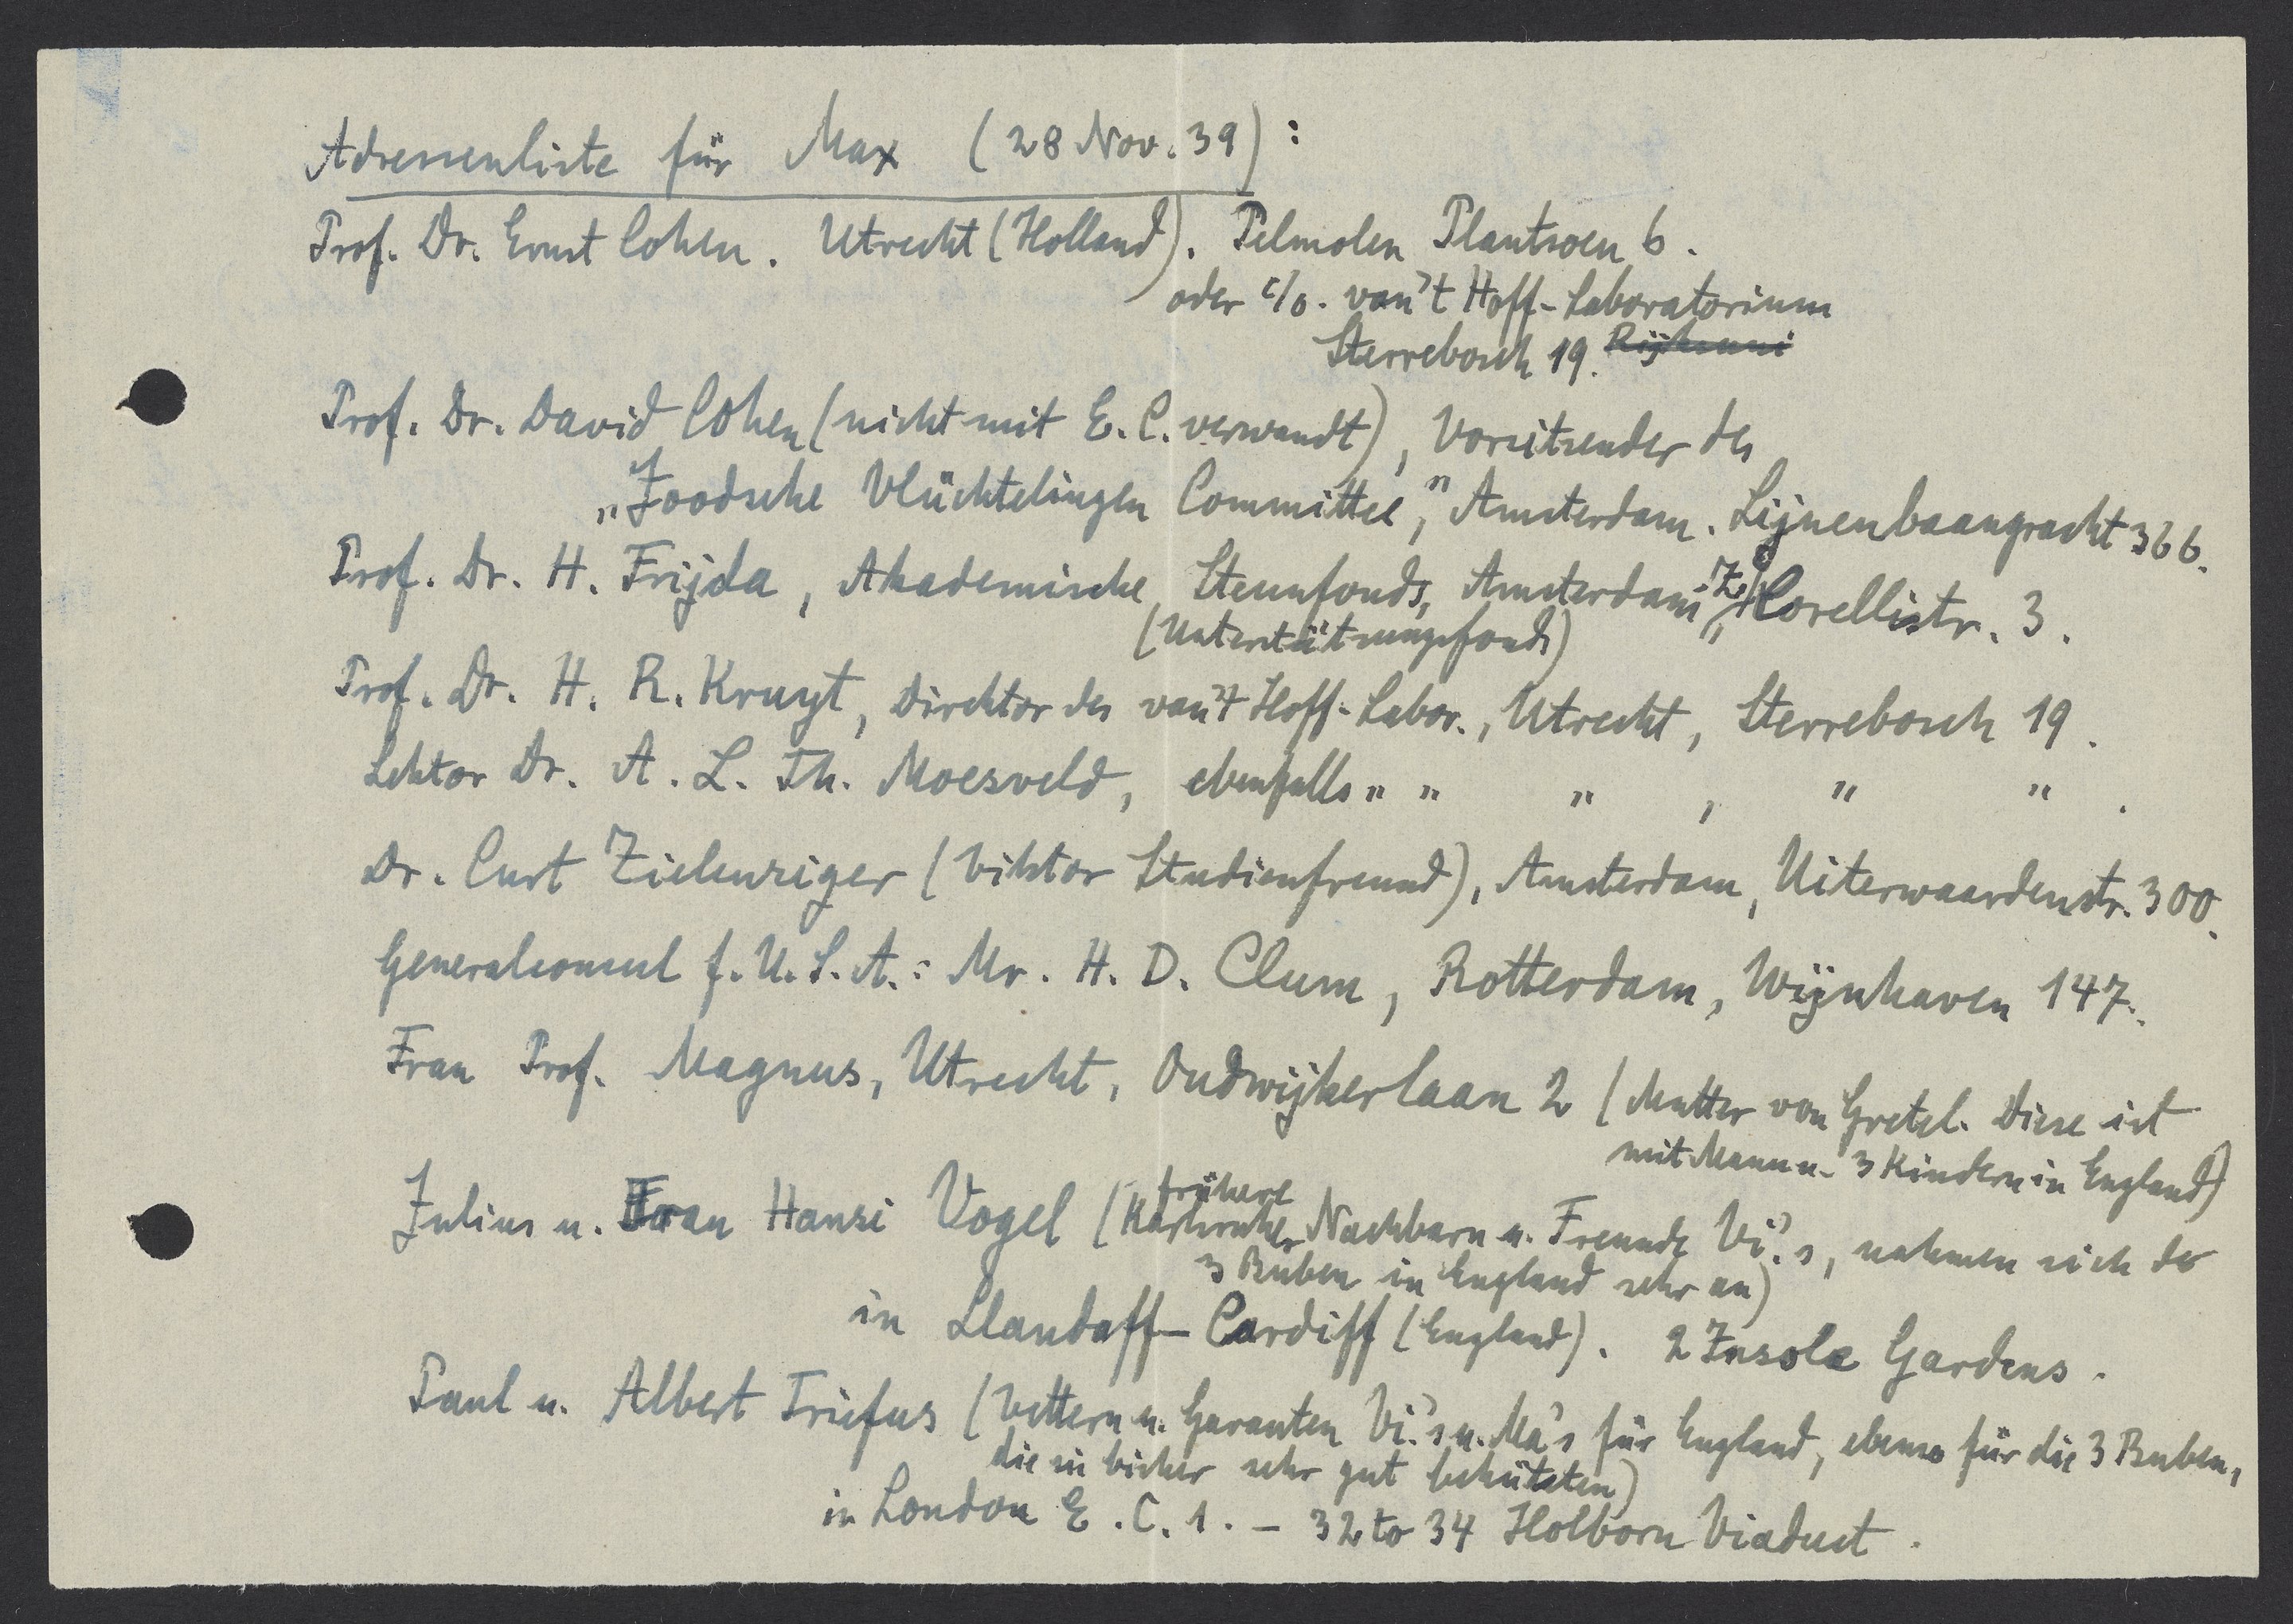 Adressenliste für Max (28 Nov. 39):
Prof. Dr. Ernst Cohen. Utrecht (Holland). Pelmolen Plantsoen 6.
oder c/o. van't Hoff-Laboratorium
Sterrebosch 19. Rijksuni
Prof. Dr. David Cohen (nicht mit E. C. verwandt), Vorsitzender des
„Joodsche Vlüchtelingen Committee," Amsterdam. Lijnenbaangracht 366.
Prof. Dr. H. Frijda, Akademische Steunfonds, Amsterdam Z, Corellistr. 3.
(Unterstützungsfonds)
Prof. Dr. H. R. Kruyt, Direktor des van't Hoff-Labor., Utrecht, Sterrebosch 19.
Lektor Dr. A. L. Th. Moesveld, ebenfalls " " " , " " .
Dr. Curt Zielenziger (Viktor Studienfreund), Amsterdam, Uiterwaardenstr. 300.
Generalconsul f. U.S.A.: Mr. H. D. Clum, Rotterdam, Wijnhaven 147.
Frau Prof. Magnus, Utrecht, Oudwijkerlaan 2 (Mutter von Gretel. Diese ist
mit Mann u. 3 Kindern in England)
Julius u. Frau Hansi Vogel (frühere Karlsruher Nachbarn u. Freunde Vi.'s, nahmen sich der
3 Buben in England sehr an)
in Llandaff-Cardiff (England). 2 Insole Gardens.
Paul u. Albert Triefus (Vettern u. Garanten Vi.'s u. Ma's für England, ebenso für die 3 Buben,
die sie bisher sehr gut behüteten)
in London E.C.1. - 32 to 34 Holborn Viaduct.